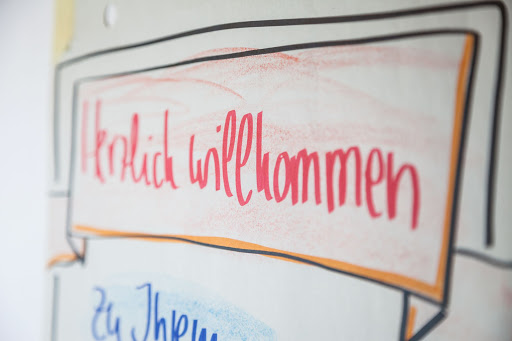 Herzlich willkommen
zu Ihrem